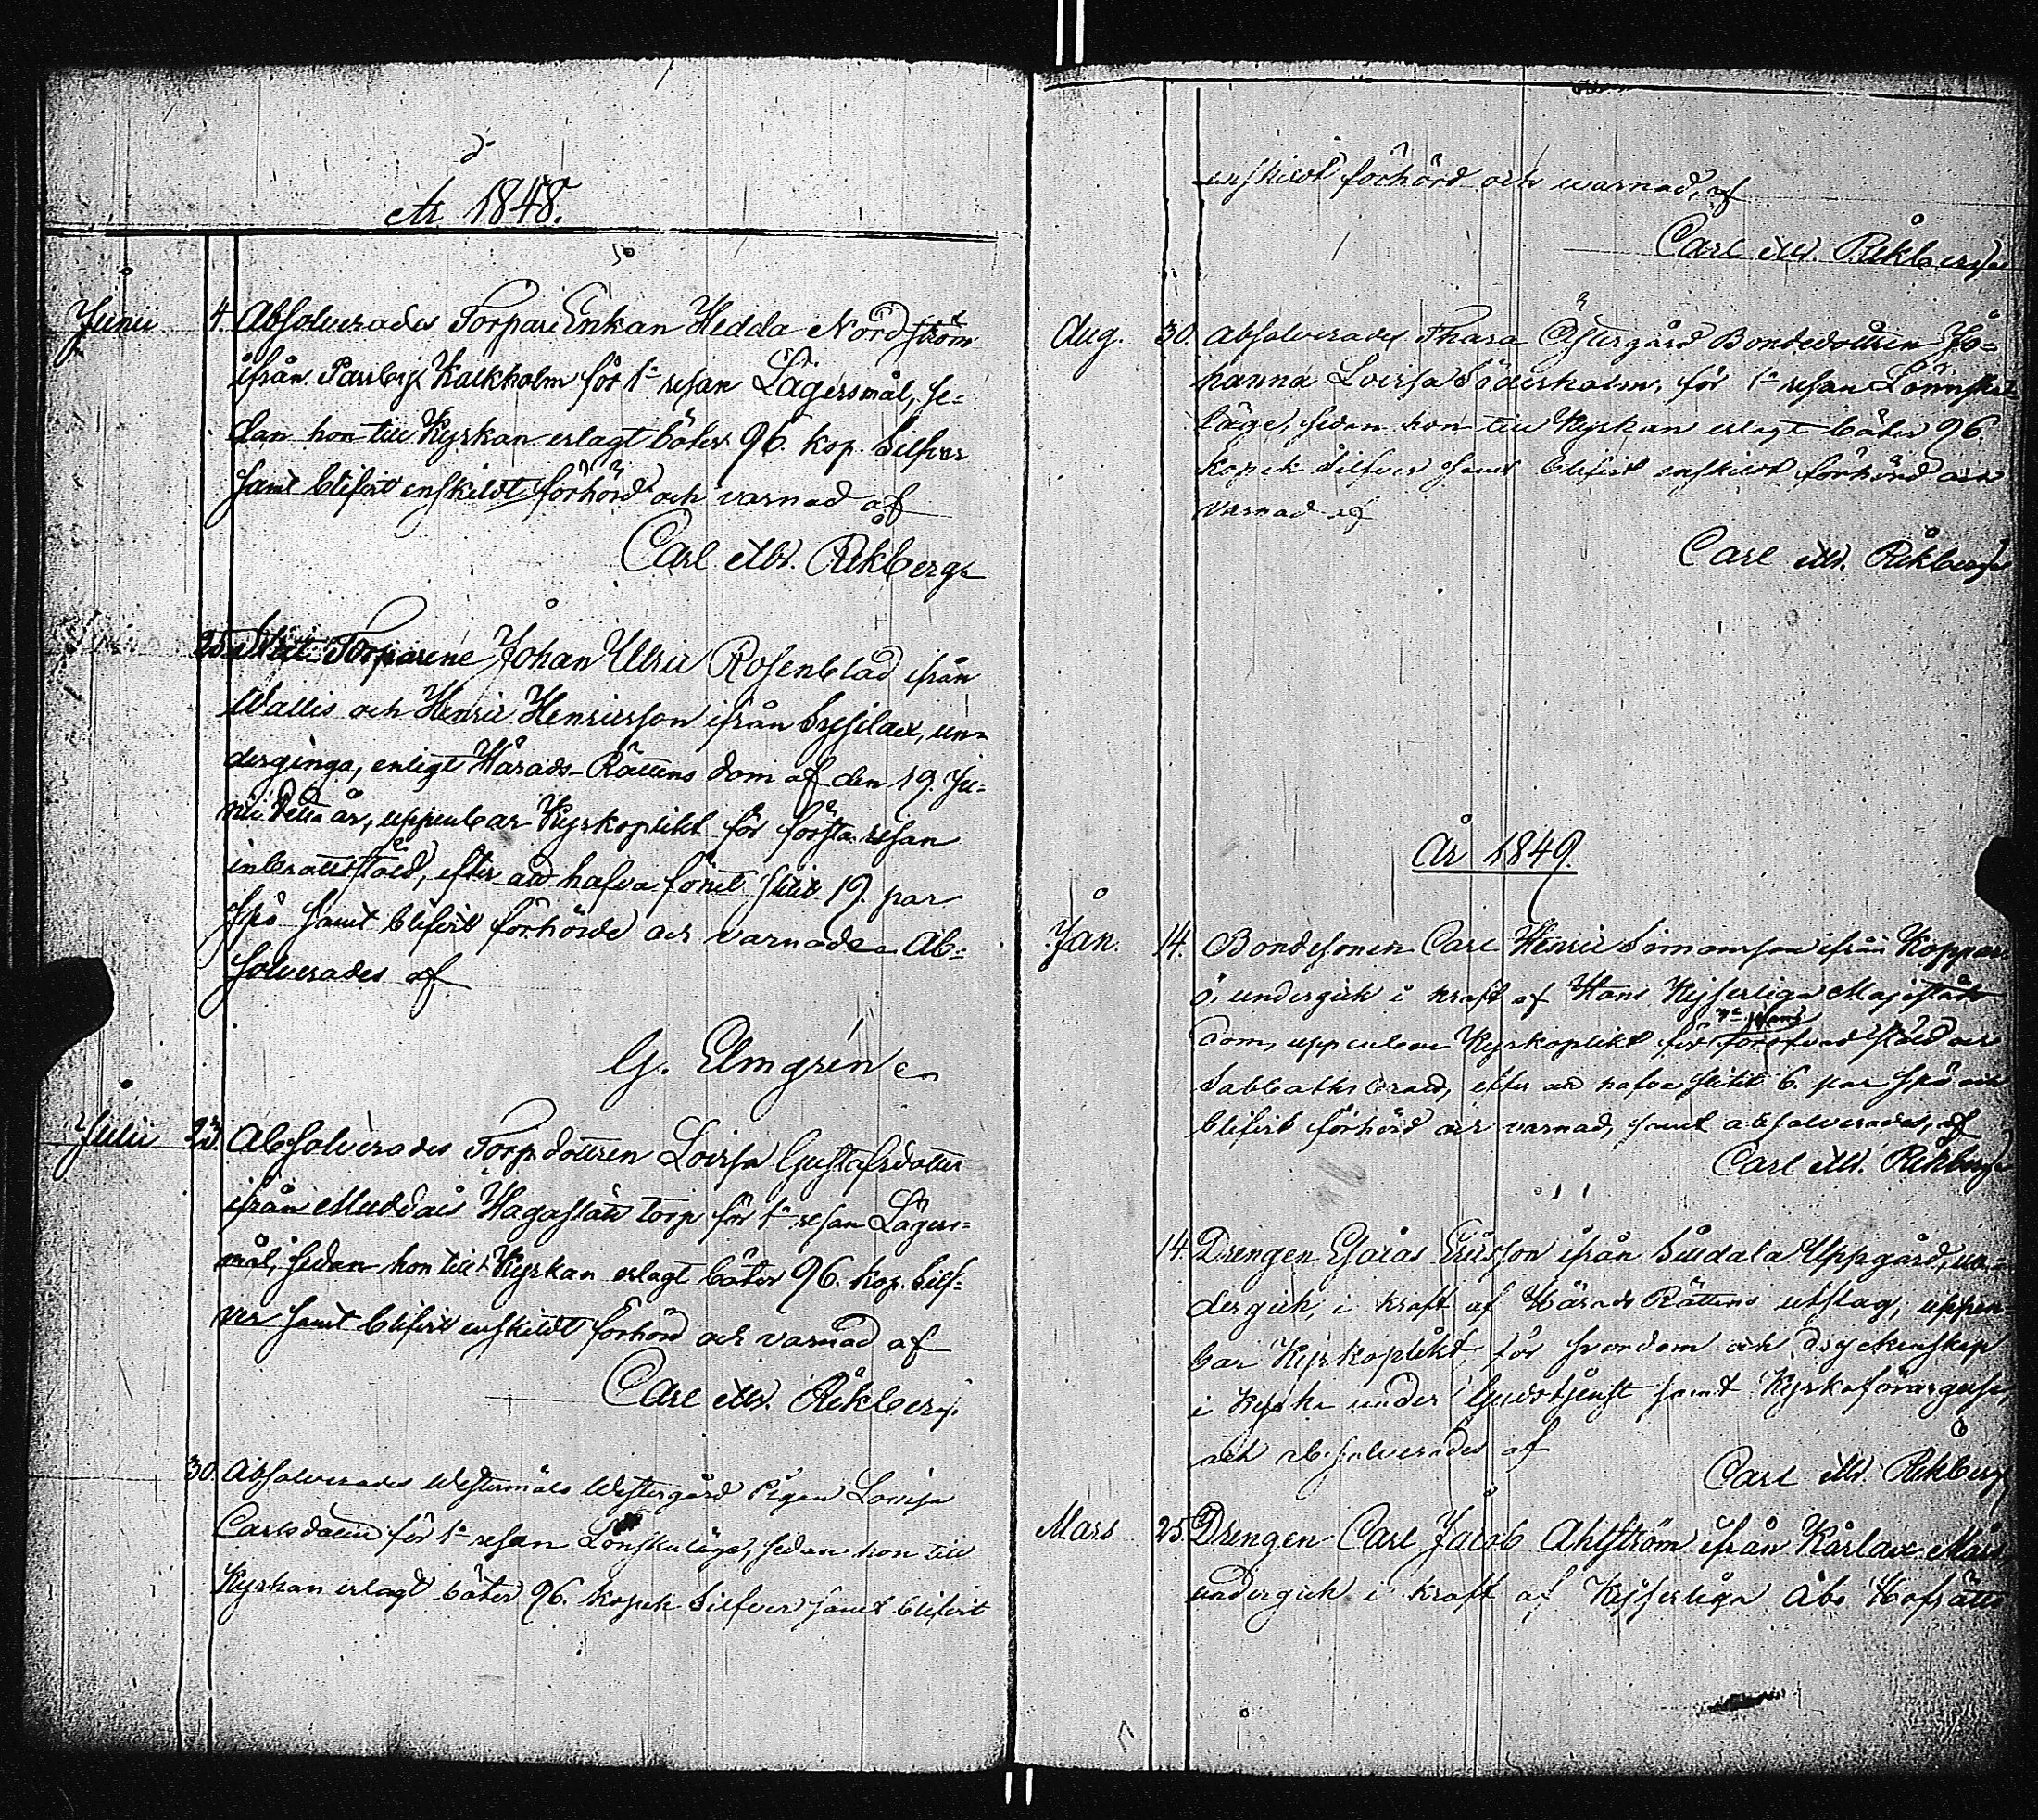 År 1848.
Junii 4. Absolverades TorpareEnkan Hedda Nordström
ifrån Parrby Kalkholm för 1a resan Lägersmål, se=
dan hon till Kyrkan erlagt böter 96. kop. Silfver
samt blifvit enskildt förhörd och varnad af
Carl M. Rikberg
25. Torparene Johan Ulric Rosenblad ifrån
Wallis och Henric Henricsson ifrån Syssilax, un=
dergingo, enligt Härads-Rättens dom af den 19. Ju=
nii detta år, uppenbar Kyrkoplikt för första resan
inbrottsstöld, efter att hafva 19. par
spö samt blifvit förhörde och varnade. Ab=
solverades af
G. Elmgrén
Julii 23. Absolverades Torpdottren Lovisa Gustafsdotter
ifrån Muddais Hagaslätt torp för 1a resan Lägers=
mål, sedan hon till Kyrkan erlagt böter 96. kop. Silf=
ver samt blifvit enskildt förhörd och varnad af
Carl M. Rikberg.
30. Absolverades Westermälo Westergård Pigan Lovisa
Carlsdotter för 1a resan Lönskaläge, sedan hon till
Kyrkan erlagt böter 96. kopek Silfver samt blifvit
enskildt förhörd och warnad, af
Carl M. Rikberg
Aug. 30. Absolverades Östergård Bondedottren Jo=
hanna Lovisa Söderholm, för 1a resan Lönnska
läge, sedan hon till Kyrkan erlagt böter 96.
kopek Silfver samt blifvit enskildt förhörd och
varnad af
Carl M. Rikberg
År 1849.
Jan. 14. Bondesonen Carl Henric Simonsson ifrån Koppar
ö, undergick i kraft af Hans Kejserliga Majestäts
Dom, uppenbar Kyrkoplikt för 3e resans stöld och
Sabbathsbrott, efter att hafva slitit 6. par spö och
blifvit förhörd och varnad, samt absolverades, af
Carl M. Rikberg
14 Drengen Esaias Ericsson ifrån Sildala Uppgård, un=
dergick, i kraft af Härads Rättens utslag, uppen
bar Kyrkoplikt, för svordom och dryckenskap
i Kyrka under Gudstjenst samt Kyrkoförargelse,
och absolverades af
Carl M. Rikberg
Mars 25. Drengen Carl Jacob Ahlström ifrån Kårlax
undergick i kraft af Kejserliga Åbo Hofrätts